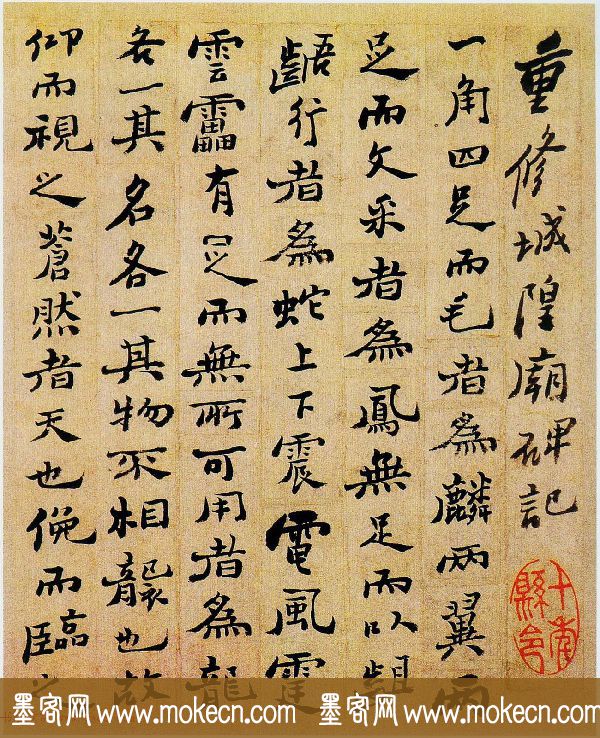 重修城隍廟碑記
一角四足而毛者為麟兩翼兩
足而文采者為鳳無足而以齟
齬行者為蛇上下震電風霆
雲靁有足而無所可用者為龍
各一其名各一其物不相襲也故
仰而視之蒼然者天也俛而臨
十年縣令
墨客网 www.mokecn.com 墨客网 www.mokecn.com